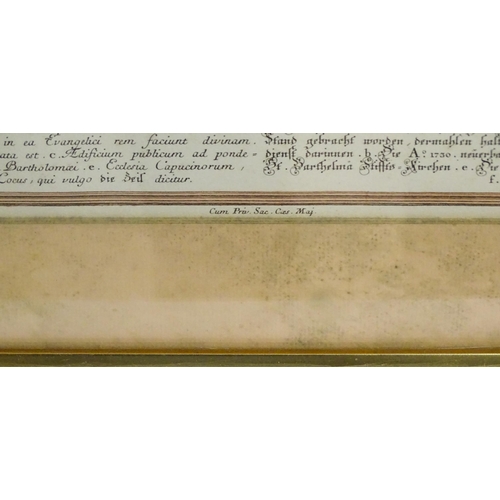 in ea Evangelici rem faciunt divinam.
ata est. c. Ædificium publicum ad ponde-
Bartholomæi. e. Ecclesia Capucinorum,
Locus, qui vulgo die Zeil dicitur.
Stand gebracht worden, dermahlen halt
dienst darinnen. b. Die A.º 1730. neüerba
f. Barthelmä Stiffts-Kirchen. e. Die
f.
Cum Priv. Sac. Cæs. Maj.